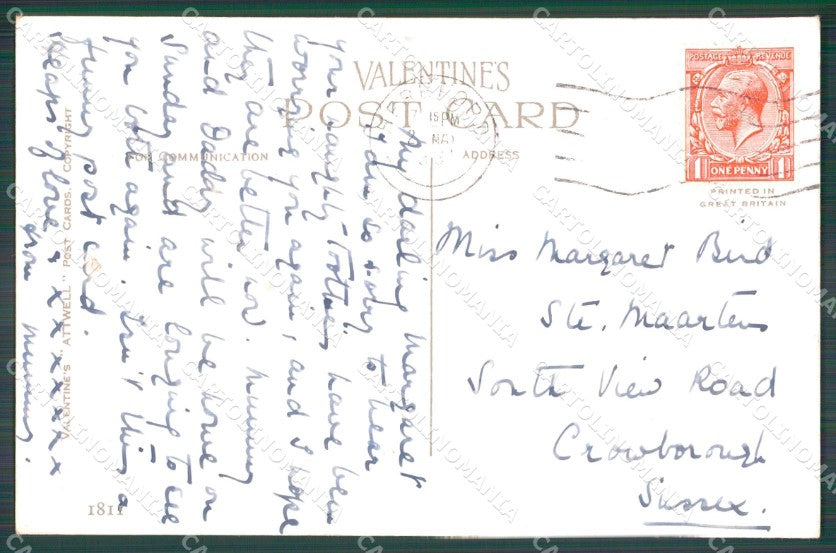 VALENTINE'S
POST CARD
FOR COMMUNICATION
ADDRESS
POSTAGE REVENUE
1 ONE PENNY 1
PRINTED IN
GREAT BRITAIN
15 PM
My darling Margaret
I am so sorry to hear
your naughty Toothies have been
worrying you again, and I hope
they are better now. Mummy
and Daddy will be home on
Sunday and are longing to see
you both again. Isn't this a
funny post card.
Heaps of love x x x x x x x
from Mummy.
Miss Margaret Bird
Ste. Maartens
South View Road
Crowborough
Sussex.
VALENTINE'S "ATTWELL" POST CARDS. COPYRIGHT
1811
CARTOLINOMANIA